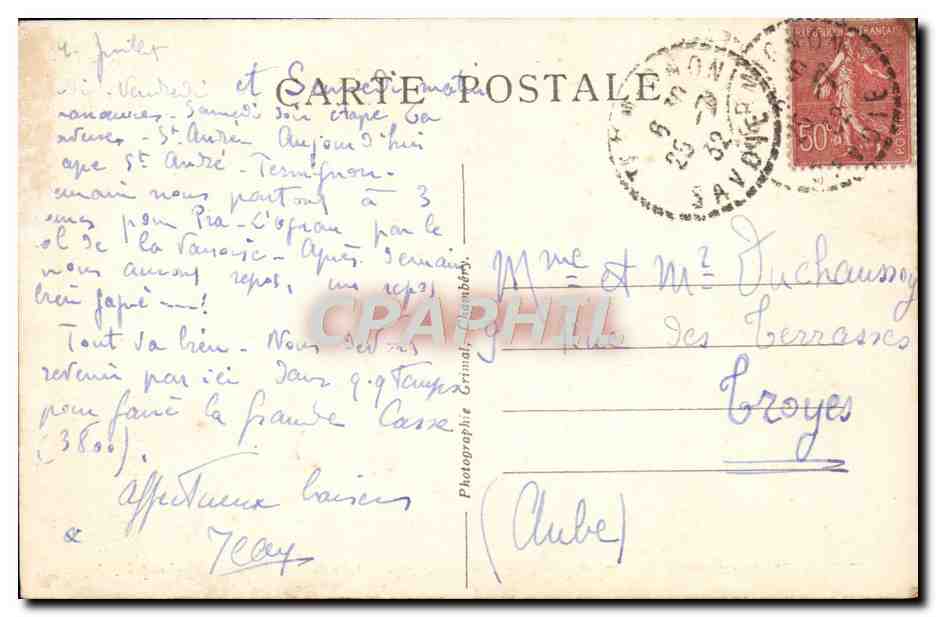 Juillet
CARTE POSTALE
Vendredi et Samedi matin
manoeuvres - Samedi soir étape
St André Aujourd'hui
ape St André - Termignon -
emain nous partons à 3
pour Pra-L'ognan par le
ol de la Vanoise - Après demain
nous aurons repos, un repos
bien gagné !
Tout va bien - Nous devons
revenir par ici dans q.q temps
pour faire la grande Casse
(3800).
affectueux baisers
Jean
Photographie Grimal, Chambéry.
TERMIGNON
25 -7
32
SAVOIE
REPUBLIQUE FRANÇAISE
50c
POSTES
Mme et Mr Duchaussoy
9 Rue des Terrasses
Troyes
(Aube)
CPAPHIL